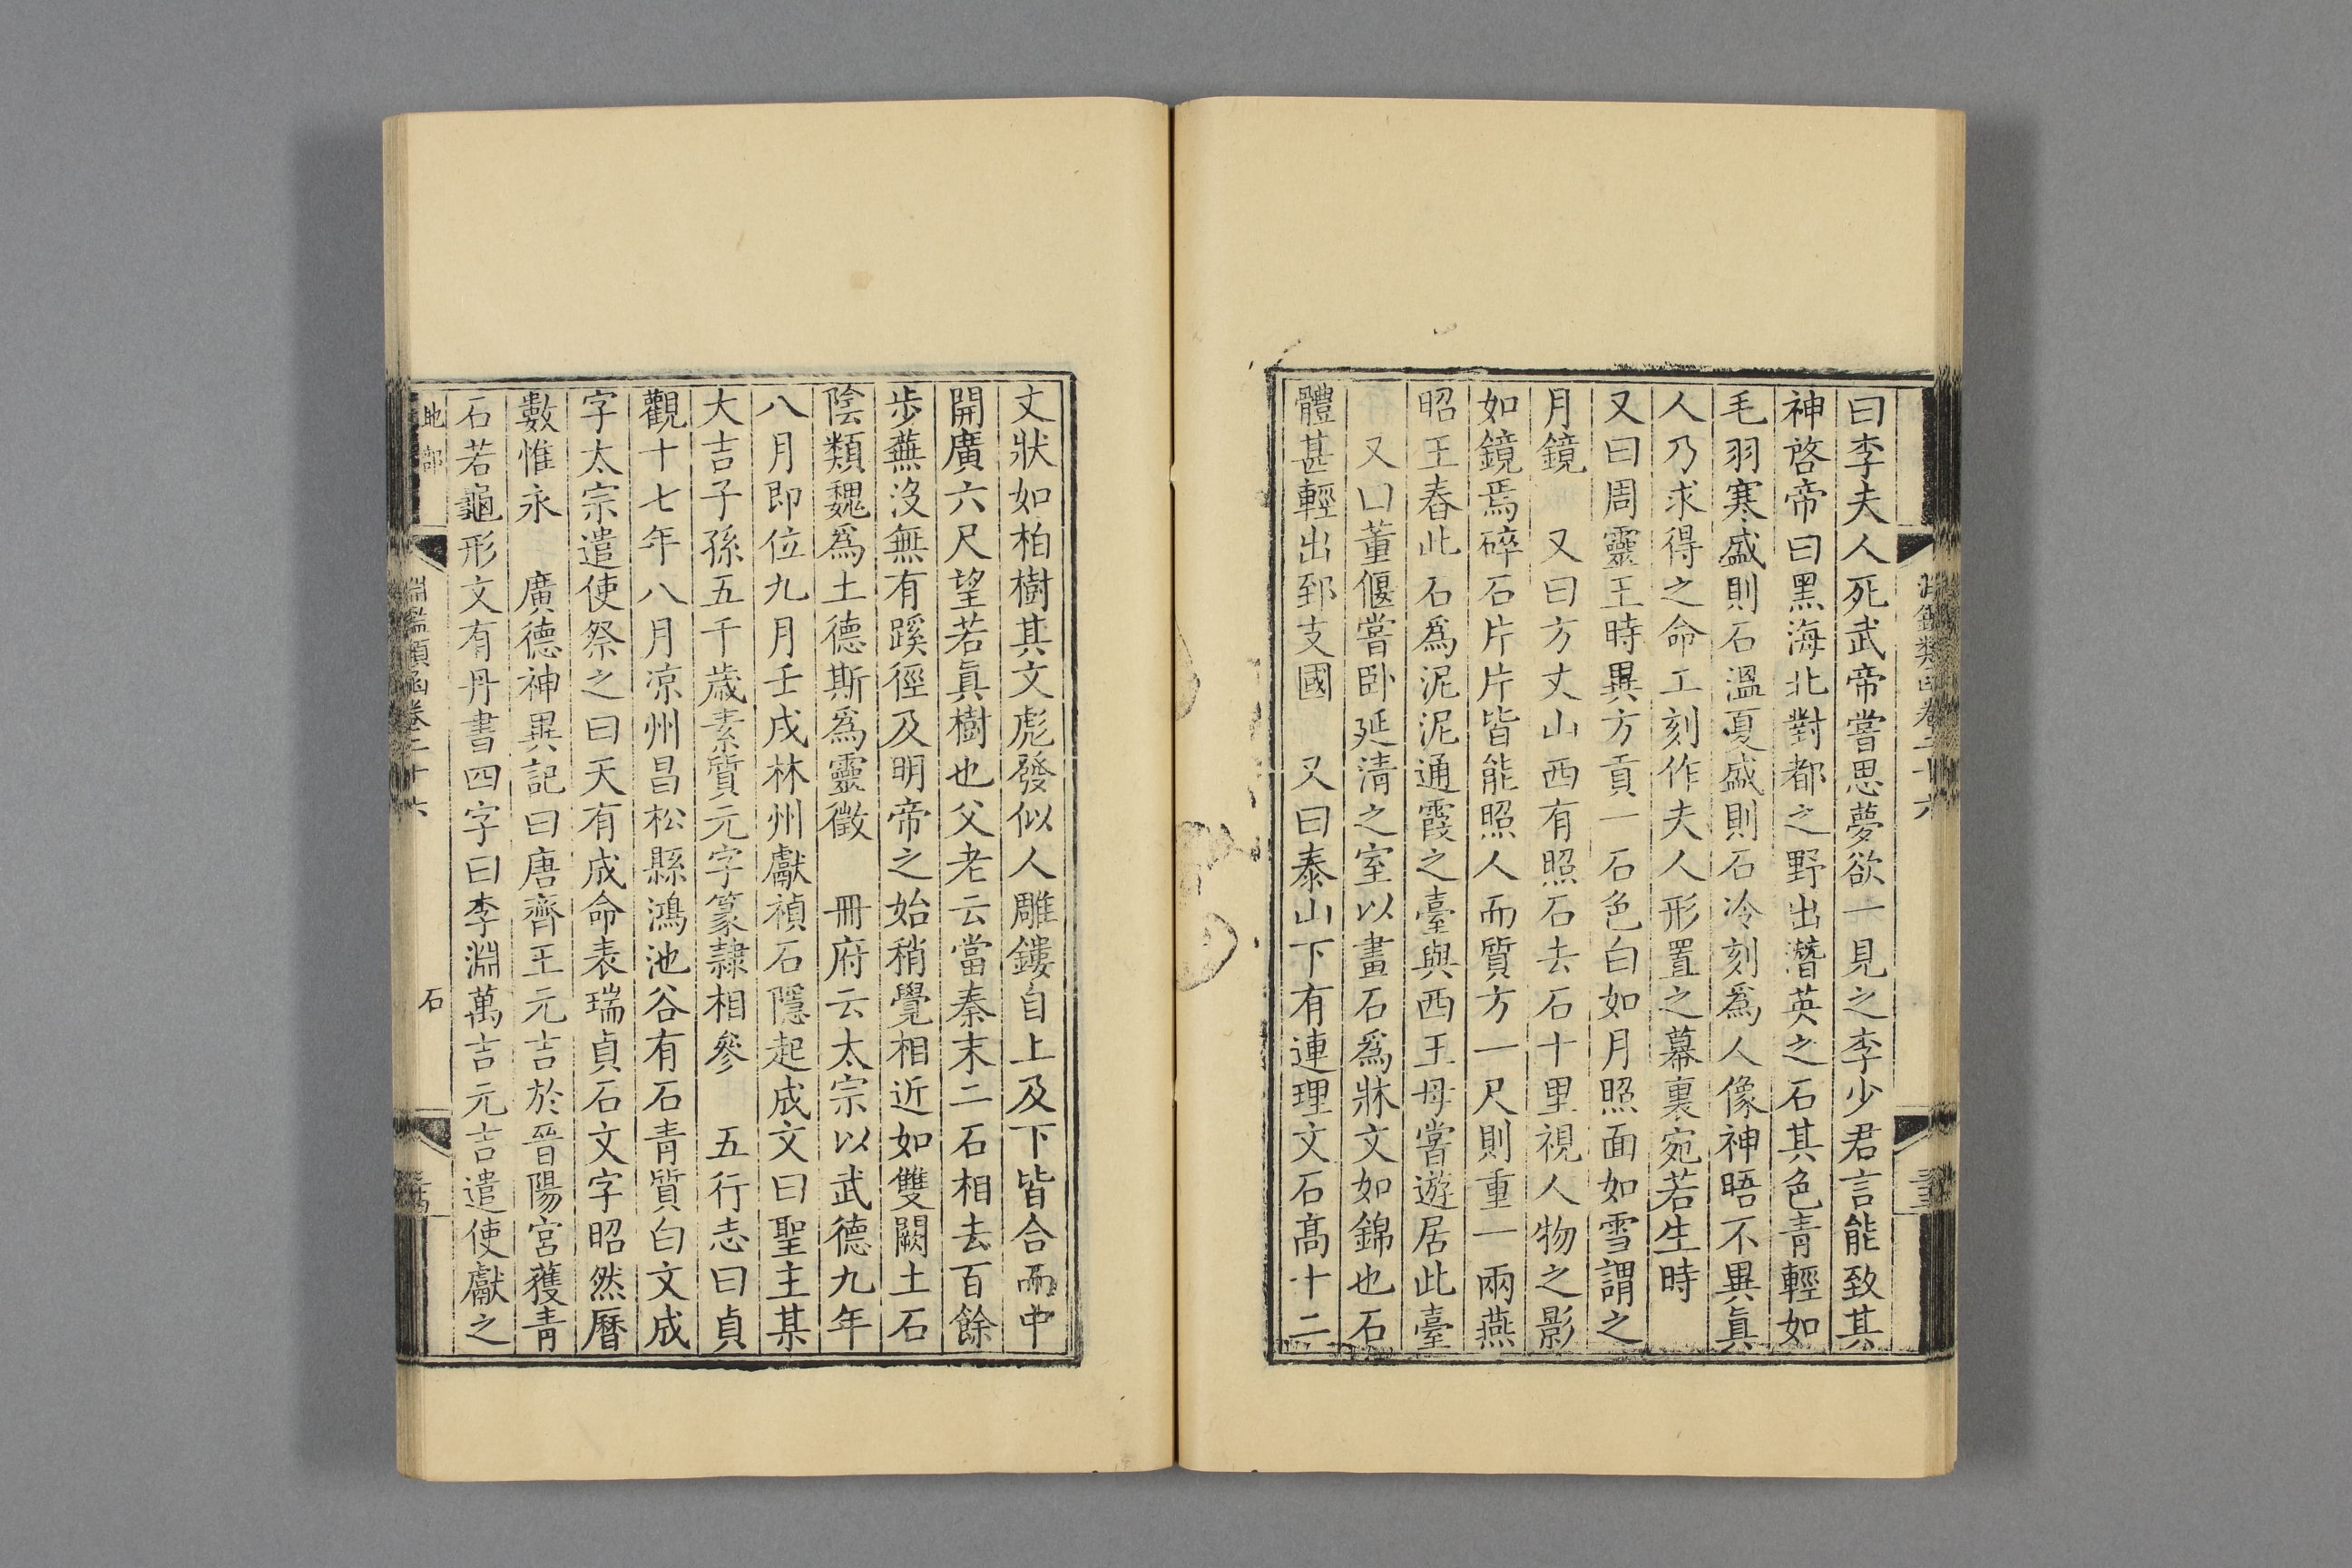 曰李夫人死武帝嘗思夢欲一見之李少君言能致其
神啓帝曰黑海北對都之野出潛英之石其色青輕如
毛羽寒盛則石溫夏盛則石冷刻爲人像神晤不異眞
人乃求得之命工刻作夫人形置之幕裏宛若生時
又曰周靈王時異方貢一石色白如月照面如雪謂之
月鏡　又曰方丈山西有照石去石十里視人物之影
如鏡焉碎石片片皆能照人而質方一尺則重一兩燕
昭王舂此石爲泥泥通霞之臺與西王母嘗遊居此臺
又曰董偃嘗卧延清之室以畫石爲牀文如錦也石
體甚輕出郅支國　又曰泰山下有連理文石高十二
丈狀如柏樹其文彪發似人雕鏤自上及下皆合而中
開廣六尺望若眞樹也父老云當秦末二石相去百餘
步蕪沒無有蹊徑及明帝之始稍覺相近如雙闕土石
陰類魏爲土德斯爲靈徵　冊府云太宗以武德九年
八月即位九月壬戌林州獻禎石隱起成文曰聖主某
大吉子孫五千歲素質元字篆隸相參　五行志曰貞
觀十七年八月凉州昌松縣鴻池谷有石青質白文成
字太宗遣使祭之曰天有成命表瑞貞石文字昭然曆
數惟永　廣德神異記曰唐齊王元吉於晉陽宮獲青
石若龜形文有丹書四字曰李淵萬吉元吉遣使獻之
地部　石
淵鑑類函卷二十六